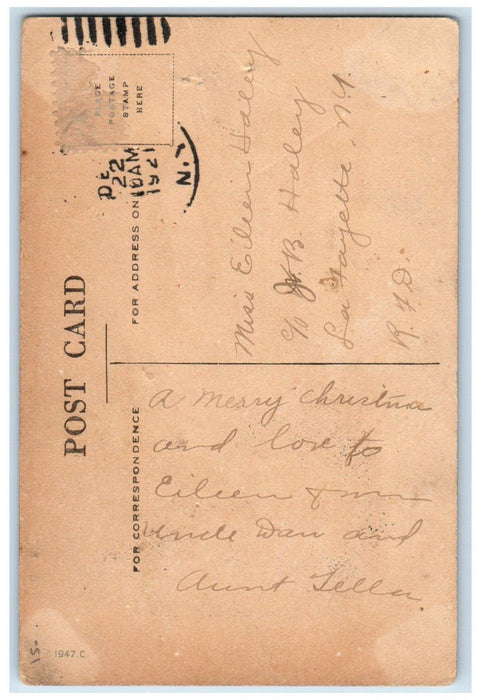 POST CARD
PLACE
POSTAGE
STAMP
HERE
DE
22
10AM
1921
N.Y
FOR ADDRESS ON
Miss Eileen Haley
c/o J. B. Haley
La Fayette, N.Y.
R.F.D.
FOR CORRESPONDENCE
A merry Christma
and love to
Eileen & from
Uncle Dan and
Aunt Tella.
15-
1947.C